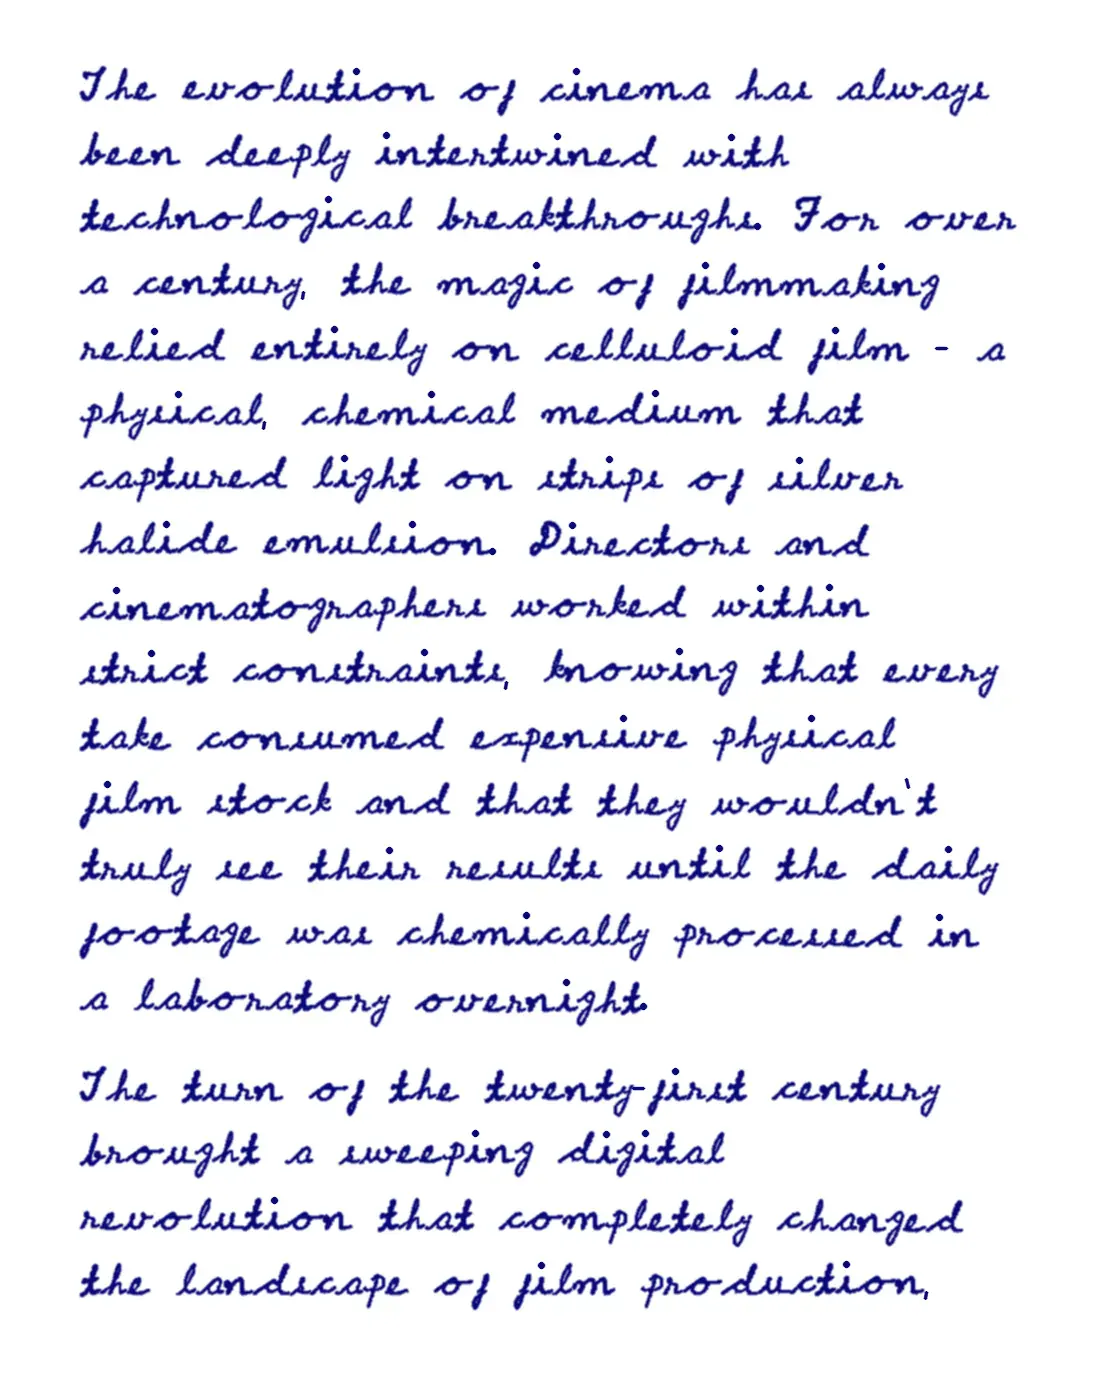 The evolution of cinema has always
been deeply intertwined with
technological breakthroughs. For over
a century, the magic of filmmaking
relied entirely on celluloid film - a
physical, chemical medium that
captured light on strips of silver
halide emulsion. Directors and
cinematographers worked within
strict constraints, knowing that every
take consumed expensive physical
film stock and that they wouldn't
truly see their results until the daily
footage was chemically processed in
a laboratory overnight.
The turn of the twenty-first century
brought a sweeping digital
revolution that completely changed
the landscape of film production,